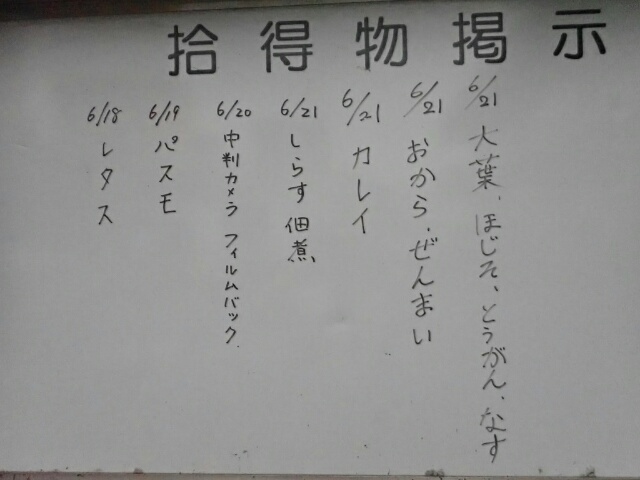 拾得物掲示
6/21 大葉、ほじそ、とうがん、なす
6/21 おから、ぜんまい
6/21 カレイ
6/21 しらす 佃煮
6/20 中判カメラ フィルムバック
6/19 パスモ
6/18 レタス